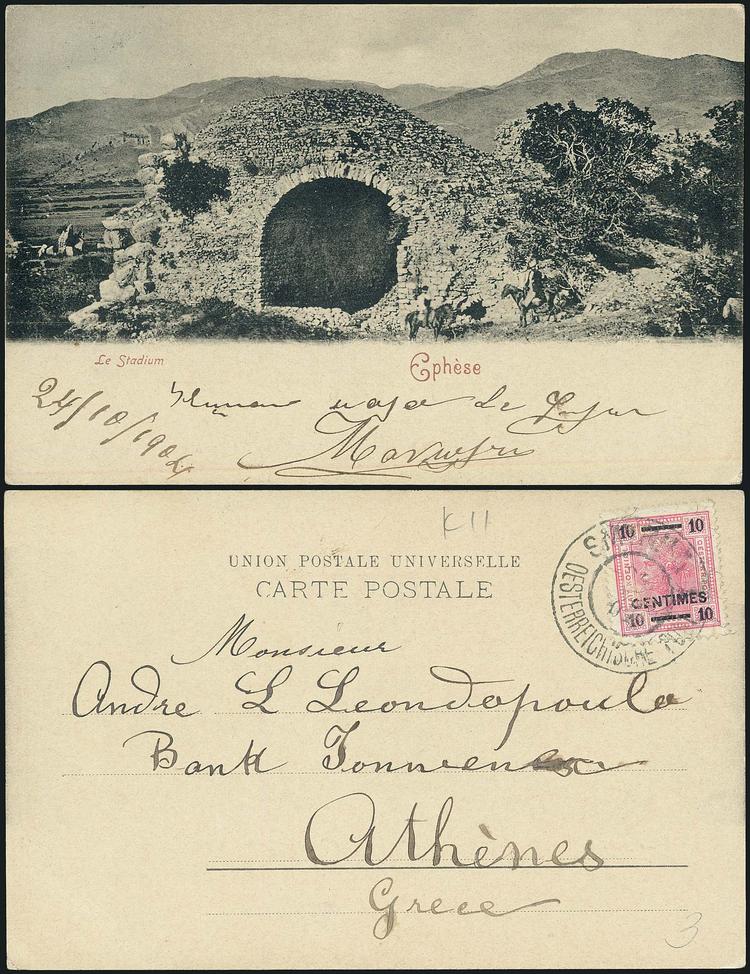 Le Stadium
Ephèse
24/10/1904
de
K11
UNION POSTALE UNIVERSELLE
CARTE POSTALE
10 10
CENTIMES
10 10
OESTERREICHISCHE
Monsieur
Andre L Leondopoulo
Bank
Athènes
Grece
3